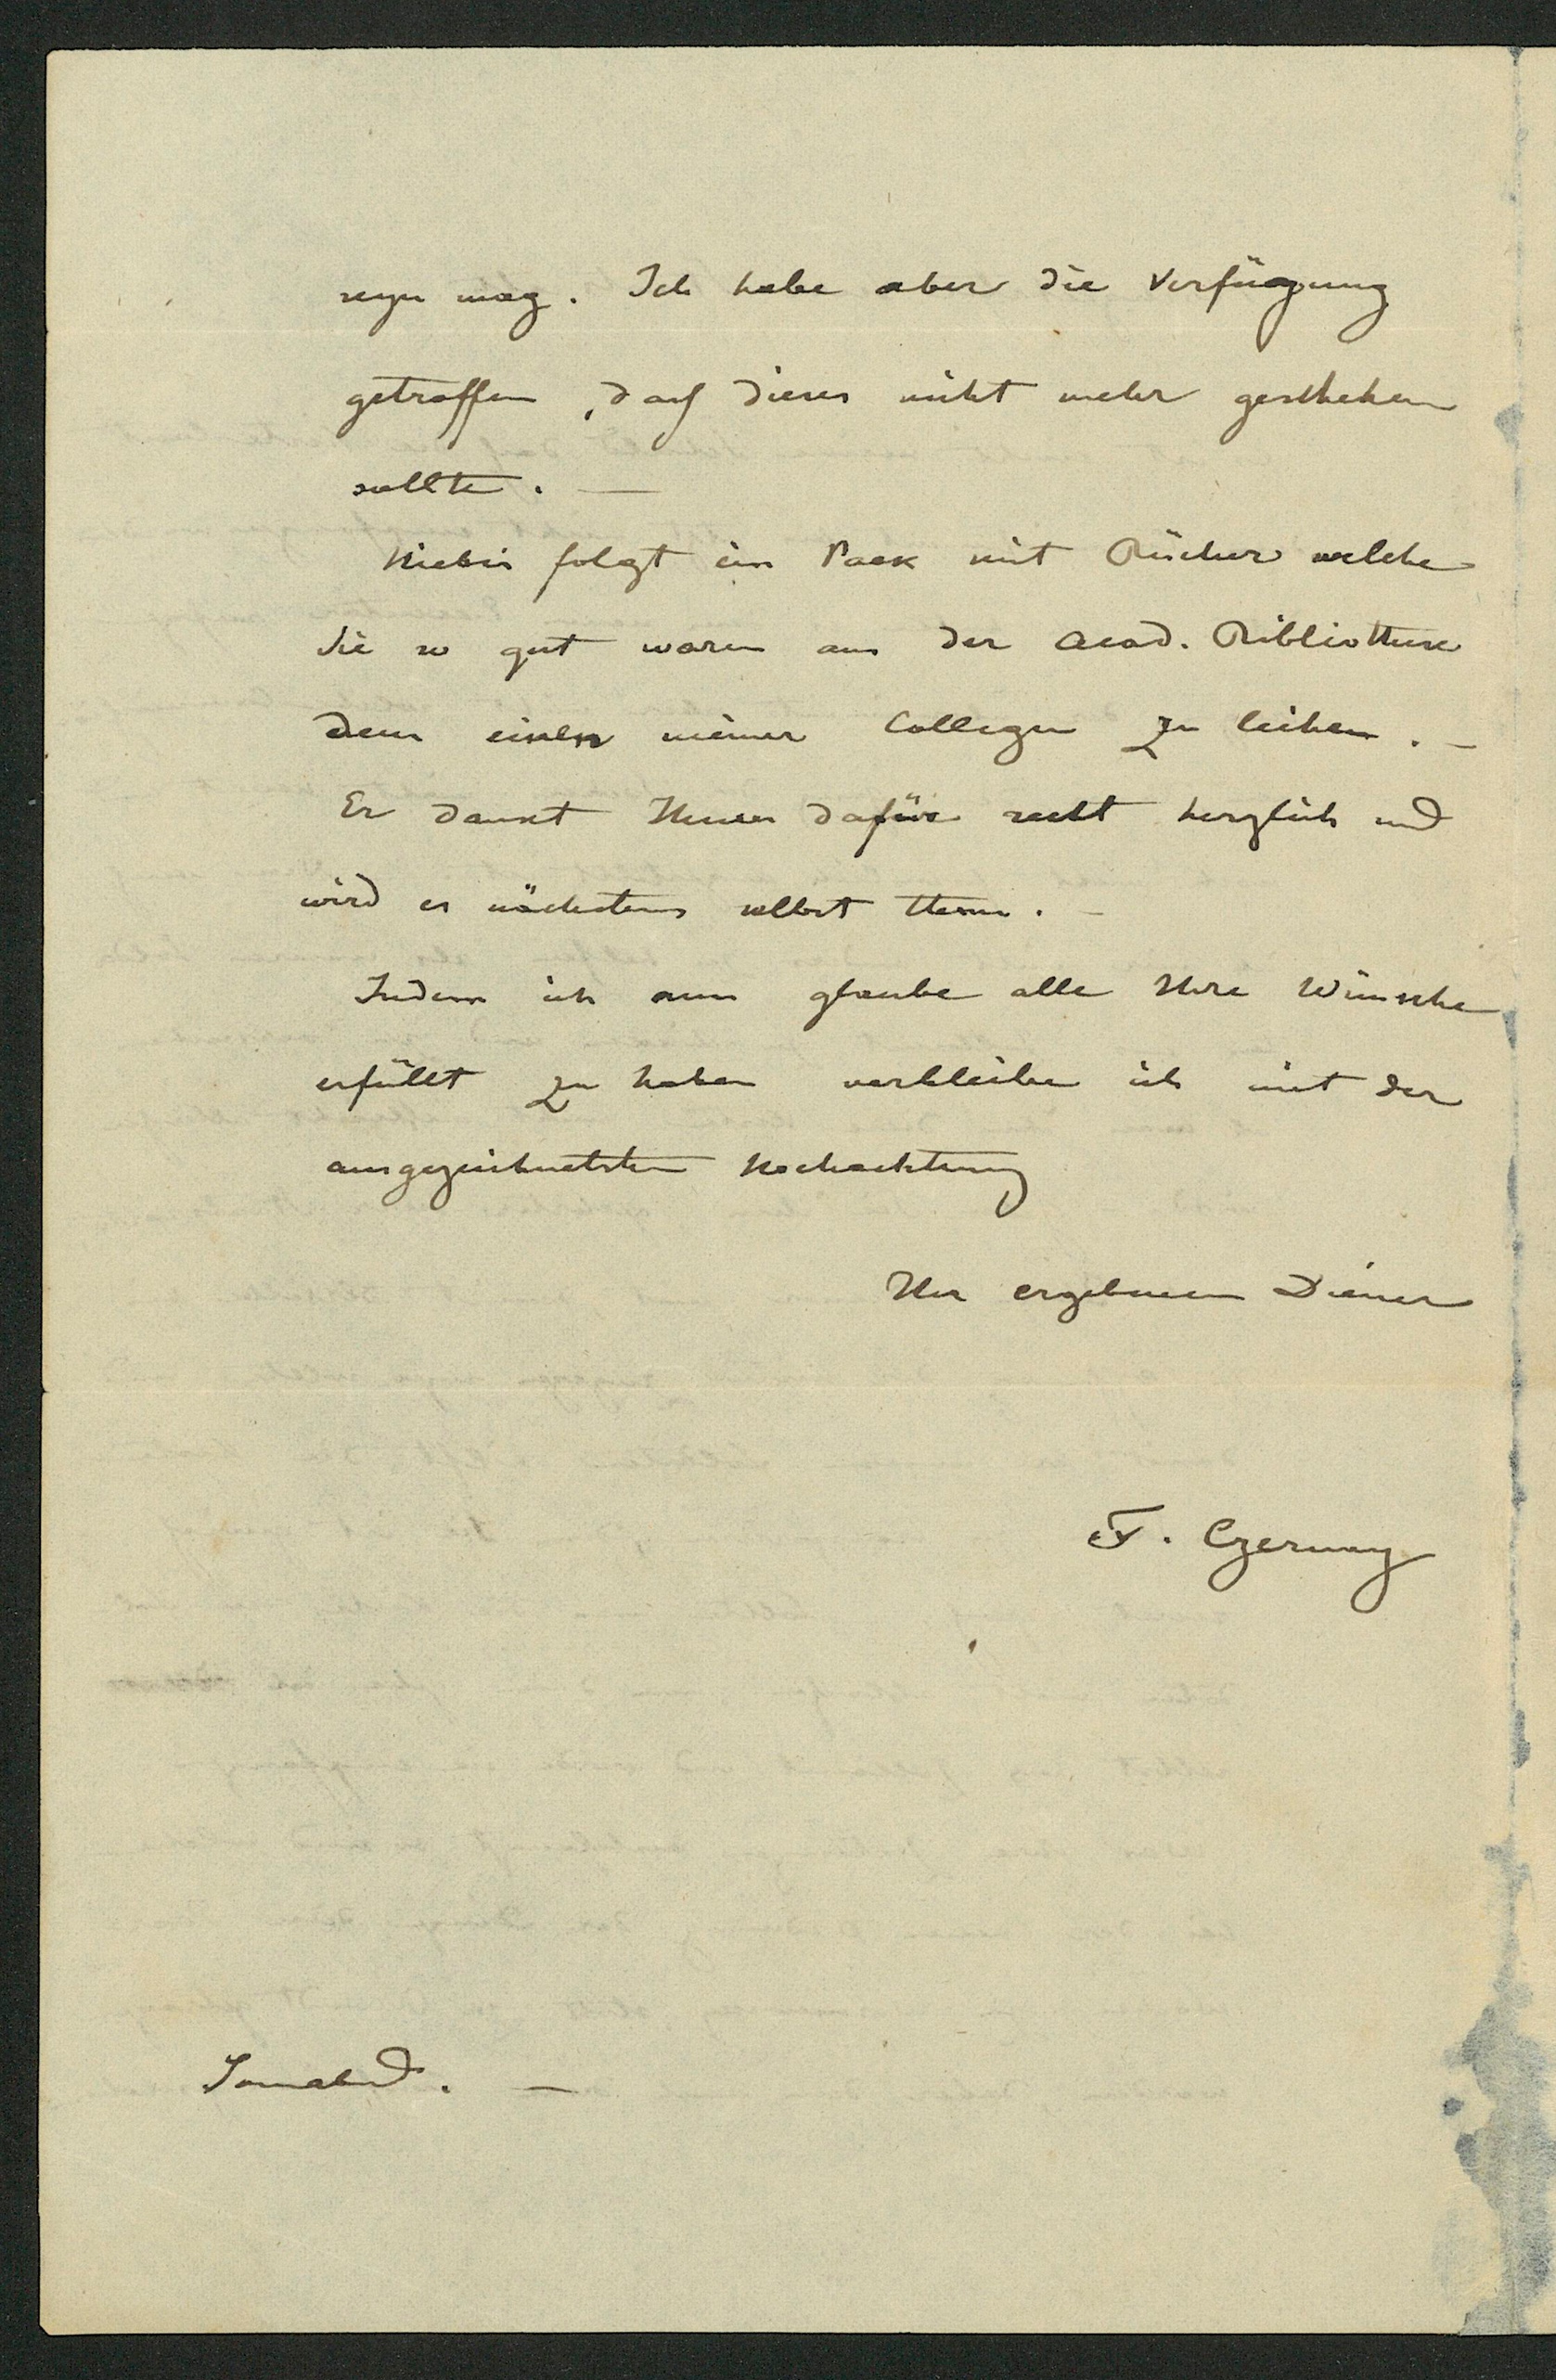 seyn mag. Ich habe aber die Verfügung
getroffen, daß dieses nicht mehr geschehen
sollte. —
Hiebei folgt ein Pack mit Bücher welche
Sie so gut waren aus der Acad. Bibliothek
dem einen meiner Collegen zu leihen. —
Er dankt Ihnen dafür recht herzlich und
wird es nächstens selbst thun. —
Indem ich nun glaube alle Ihre Wünsche
erfüllt zu haben verbleibe ich mit der
ausgezeichnetsten Hochachtung
Ihr ergebener Diener
F. Czermay
Sonnabend. —